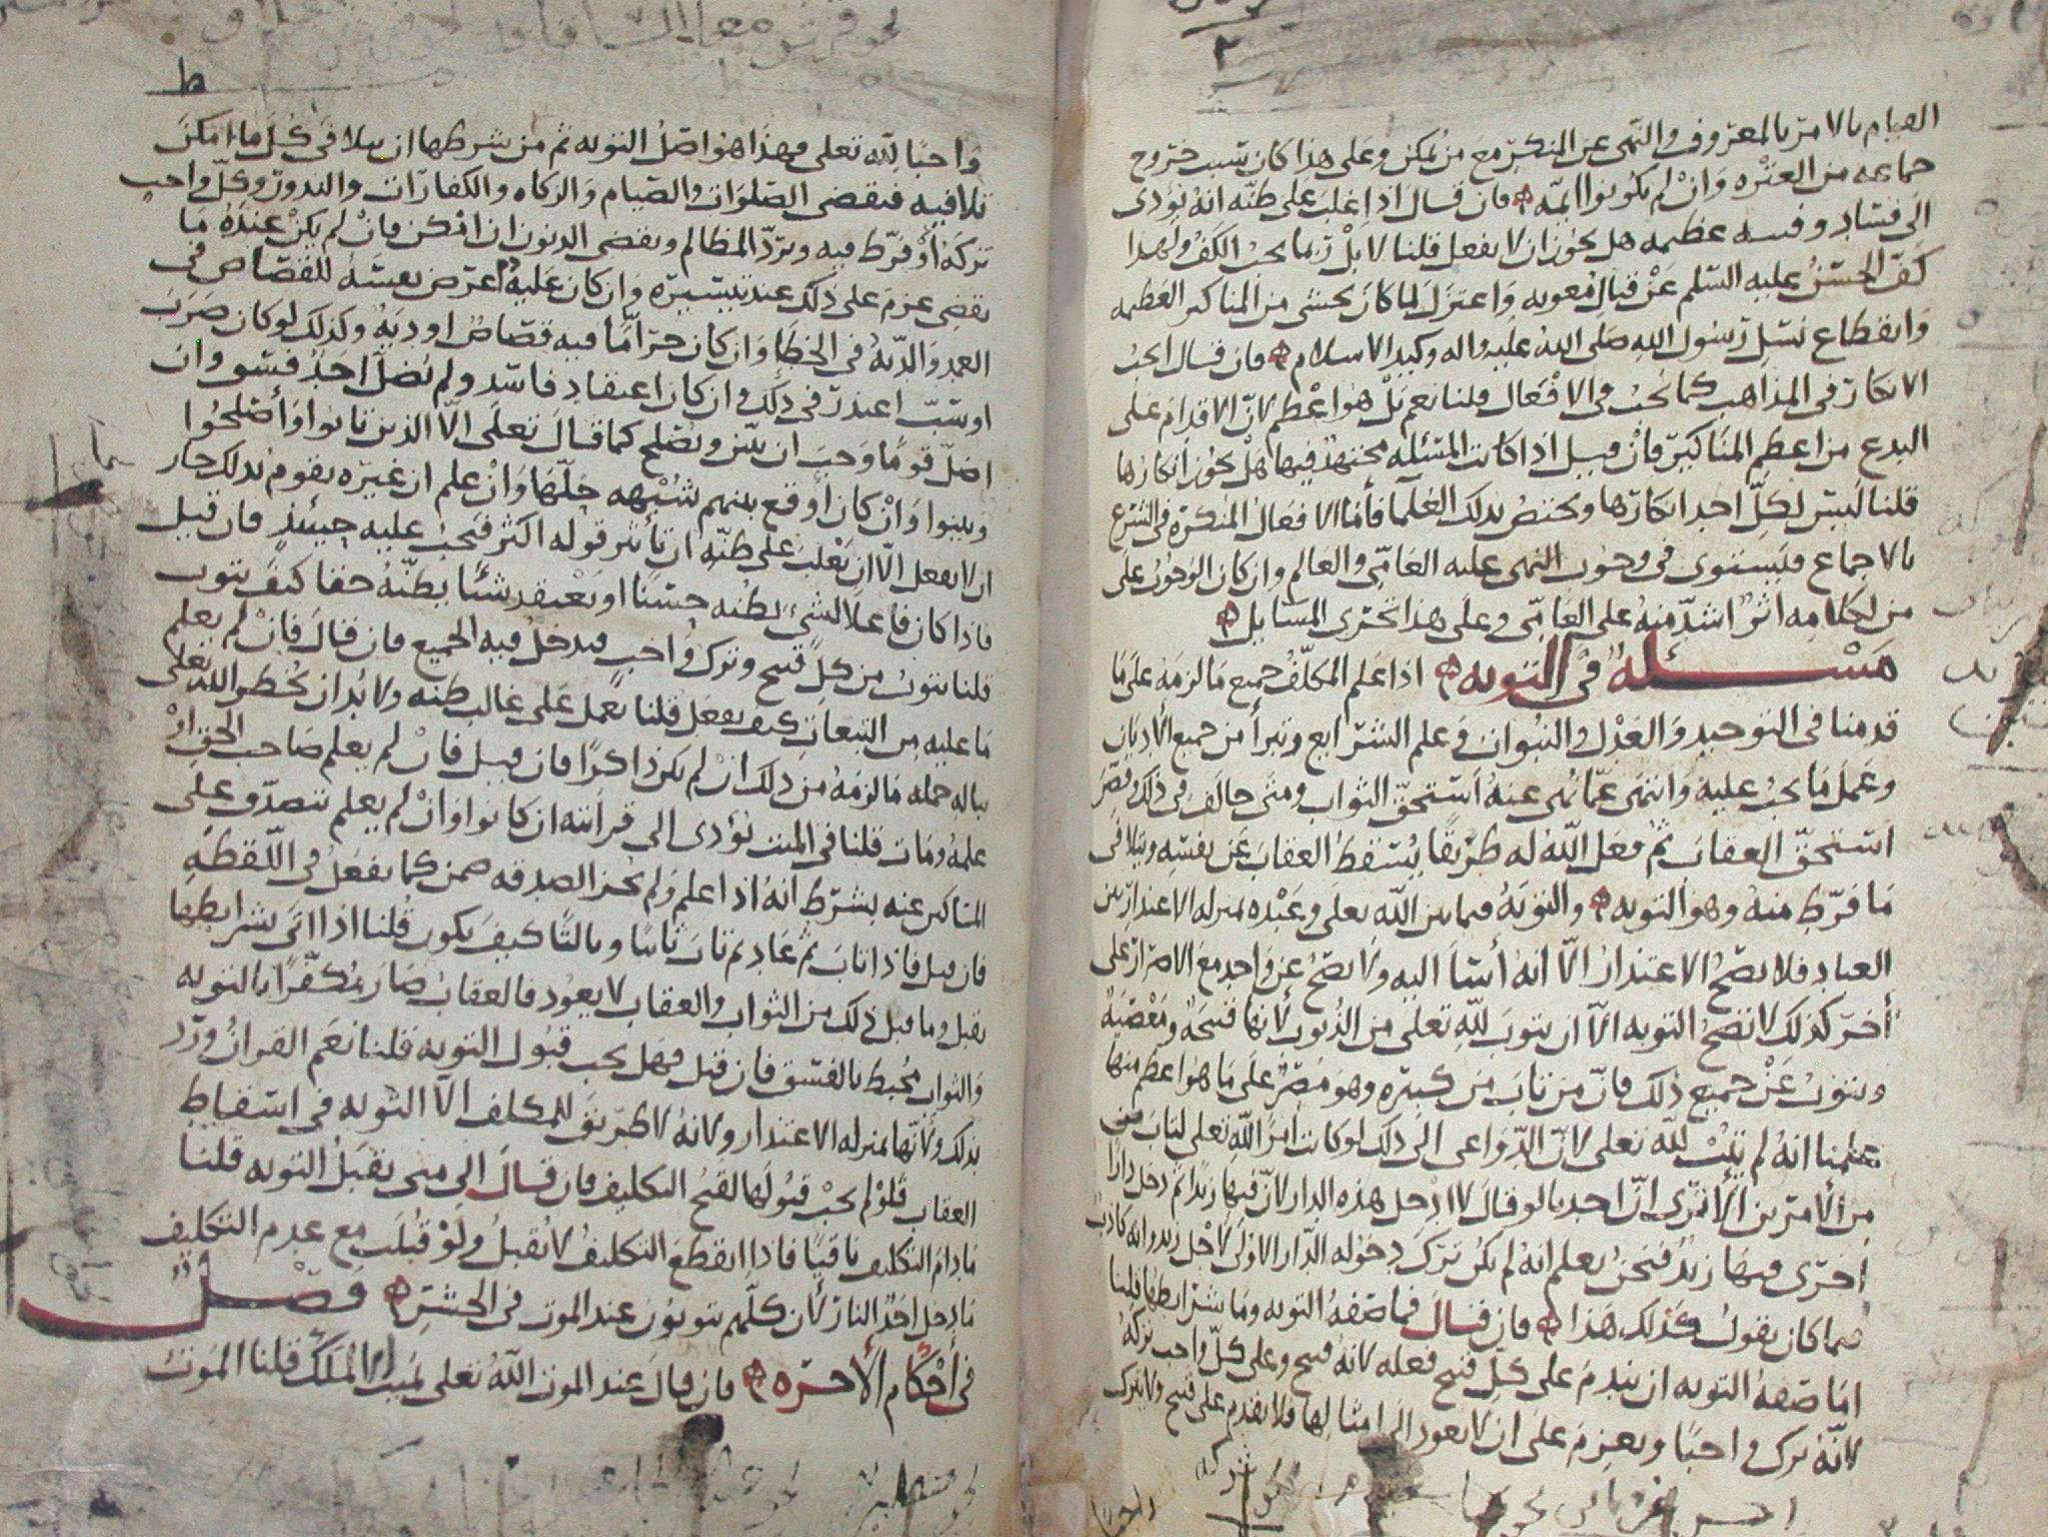 القيام بالامر بالمعروف والنهى عن المنكر مع من يمكن وعلى هذا كان سبب خروج
جماعه من العتره وان لم يكونوا ائمه فان قال اذا غلب على ظنه انه يؤدى
الى فساد وفتنه عظيمه هل يجوز ان لا يفعل قلنا لا بل ربما يجب الكف ولهذا
كف الحسن عليه السلم عن قتال معويه واعتزل لما كان يخشى من المناكير العظيمه
وانقطاع نسل رسول الله صلى الله عليه واله وكيد الاسلام فان قال ايجب
الانكار فى المذاهب كما يجب فى الافعال قلنا نعم بل هو اعظم لان الاقدام على
البدع من اعظم المناكير فان قيل اذا كانت المسئله مجتهد فيها هل يجوز انكارها
قلنا ليس لكل احد انكارها ويختص بذلك العلما فأما الافعال المنكرة فى الشرع
بالاجماع فليستوى فى وجوب النهى عليه العامى والعالم وان كان الوجوب على
من لكلامه اثر اشد منه على العامى وعلى هذا تجرى المسايل
مسئله فى التوبه اذا علم المكلف جميع ما لزمه على ما
قدمنا فى التوحيد والعدل والنبوات وعلم الشرايع وتبرأ من جميع الاديان
وعمل ما يجب عليه وانتهى عما نهى عنه استحق الثواب ومتى خالف فى ذلك وقصر
استحق العقاب ثم جعل الله له طريقا يسقط العقاب عن نفسه ويتلافى
ما فرط منه وهو التوبه والتوبه فيما بين الله تعلى وعبده بمنزله الاعتذار بين
العباد فلا يصح الاعتذار الا انه أسا اليه ولا يصح عن واحد مع الاصرار على
أخر كذلك لا تصح التوبه الا ان يتوب لله تعلى من الذنوب لانها قبيحة ومعصية
ويتوب عن جميع ذلك فان من تاب من كبيره وهو مصر على ما هو اعظم منها
علمنا انه لم يتب لله تعلى لان الدواعى الى ذلك لو كانت امر الله تعلى لتاب من
من الامرين الا نرى ان احدنا لو قال لا ادخل هذه الدار لان فيها زيدا ثم دخل دارا
اخرى فيها زيد فنحن نعلم انه لم يكن ترك دخوله الدار الاولى لاجل زيد وانه كاذب
فيما كان يقول فكذلك هذا فان قال فما صفه التوبه وما شرايطها قلنا
اما صفه التوبه ان يندم على كل قبيح فعله لانه قبيح وعلى كل واجب تركه
لانه ترك واجبا ويعزم على ان لا يعود الى امثالها فلا يقدم على قبيح ولا يترك
واجبا لله تعلى فهذا هو اصل التوبه ثم من شرطها ان يتلافى كل ما امكن
تلافيه فيقضى الصلوات والصيام والزكاه والكفارات والنذور وكل واجب
تركه أو فرط فيه ويرد المظالم ويقضى الديون ان امكن فان لم يكن عنده ما
يقضى عزم على ذلك عند تيسيره وان كان عليه اعترض نفسه للقصاص فى
العمد والدية فى الخطا وان كان جراما فيه قصاص او ديه وكذلك لو كان ضرب
او سب اعتذر فى ذلك وان كان اعتقاد فاسد ولم يضل احد فسق وان
اضل قوما وجب ان يبين ويصلح كما قال تعلى الا الذين تابوا وأصلحوا
وبينوا وان كان اوقع بينهم شبهه حلها وان علم ان غيره يقوم بذلك جاز
ان لا يفعل الا ان يغلب على ظنه ان تأثير قوله اكثر فيجب عليه حينئذ فان قيل
فاذا كان فاعلا لشئ يظنه حسنا او يعتقد شئا يظنه حقا كيف يتوب
قلنا يتوب من كل قبيح وترك واجب فيدخل فيه الجميع فان قال فان لم يعلم
ما عليه من التبعات كيف يفعل قلنا يعمل على غالب ظنه ولا بد ان يخطر الله تعلى
بباله جمله ما لزمه من ذلك ان لم يكن ذاكرا فان قيل فان لم يعلم صاحب الحق او
علمه ومات قلنا فى الميت يؤدى الى قرابته ان كانوا وان لم يعلم تتصدق على
المساكين عنه بشرط انه اذا علم ولم يجز الصدقه ضمن كما يفعل فى اللقطه
فان قيل فاذا تاب ثم عاد ثم تاب ثانيا وثالثا كيف يكون قلنا اذا اتى بشرايطها
يقبل وما قبل ذلك من الثواب والعقاب لا يعود فالعقاب صار مكفرا بالتوبه
والثواب محبط بالفسق فان قيل فهل يجب قبول التوبه قلنا نعم القران ورد
بذلك ولانها بمنزله الاعتذار ولانه لا طريق للمكلف الا التوبه فى اسقاط
العقاب فلو لم يجب قبولها لقبح التكليف فان قال الى متى يقبل التوبه قلنا
ما دام التكليف باقيا فاذا انقطع التكليف لا يقبل ولو قبلت مع عدم التكليف
ما دخل احد النار لان كلهم يتوبون عند الموت فى الحشر فصل
فى أحكام الأخره فان قال عند الموت الله تعلى يميت ام الملك قلنا الموت